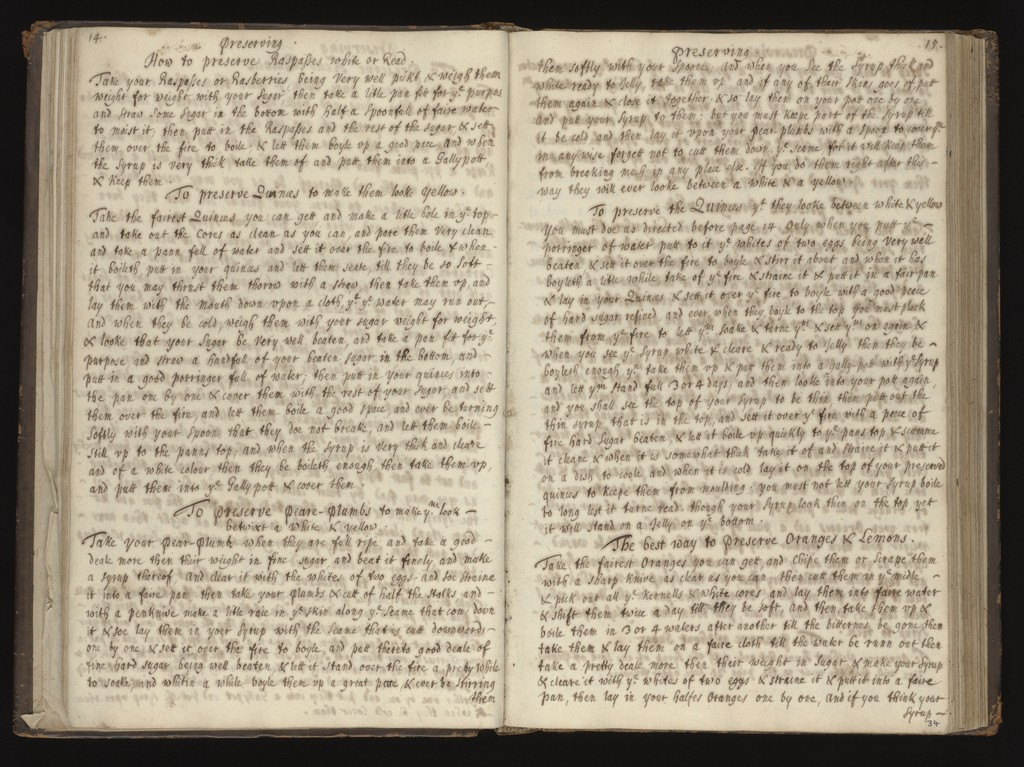 14.
Preserving.
How to preserve Raspasses white or Read
Take your Raspasses or Rasberries being very well pikt & weigh them
weight for weight with your Sugar then take a litle pan fit for yᵉ purpos
and straw some sugar in the bottom with half a spoonfull of faire water
to moist it. then putt in the Raspasses and the rest of the sugar, & sett
them over the fire to boile, & lett them boyle vp a good pace, and when
the syrup is very thik take them of and putt them into a Gallypott
& keep them
To preserve Quinces to make them look yellow.
Take the fairest Quinces you can gett and make a litle hole in yᵉ top
and take out the Cores as clean as you can, and pere them very clean
and take a pann full of water and sett it over the fire to boile & when
it boileth putt in your quinces and lett them seate, till they be so soft
that you may thrust them thorrow with a straw, then take them vp, and
lay them with the mouth down vpon a cloth, yᵗ yᵉ water may run out,
And when they be cold, weigh them with your sugar weight for weight,
& looke that your sugar be very well beaten, and take a pan fit for yᵉ
purpose and straw a handfull of your beaten sugor in the bottom, and
putt in a good porringer full of water; then putt in your quinces into
the pan one by one & cover them with the rest of your Sugor, and sett
them over the fire, and lett them boile a good space, and ever be torning
softly with your spoon that they doe not breake, and lett them boile
still vp to the panns top, and when the syrup is very thick and cleare
and of a white colour then they be boileth enough then take them vp,
and putt them into yᵉ Gallypott & cover them.
To preserve Peare-plumbs to make yᵐ look
betwixt a white & yellow.
Take your Pear-plumb when they are full ripe and take a good
deale more then their weight in fine sugar and beat it finely and make
a syrup thereof, And clear it with the whites of two eggs and soe straine
it into a faire pan, then take your plumbs & cutt of half the stalks and
with a penknife make a litle race in yᵉ skin along yᵉ seame that com down
it & soe lay them in your syrup with the seame that is cutt downwards
one by one & sett it over the fire to boyle, and putt thereto good deale of
fine hard sugar being well beaten, & lett it stand over the fire a pretty while
to soake, and within a while boyle them vp a great pace, & ever be stirring
them
15.
Preserving
them softly with your spoone. And when you see the syrup thick and
white ready to Jelly, take them vp, and if any of their skins goes of putt
them again & close it together, & so lay them on your pott one by one
And putt your syrup to them; but you must keepe part of the syrup till
it be cold and then lay it vpon your pear plumbs with a spoon to cover yᵐ
in any wise forgett not to cutt them down yᵉ seame for it will keep them
from breaking much in any place else. If you do them right after this
way they will ever looke between a white & a yellow.
To preserve the Quinces yᵗ they looke between white & yellow
You must doe as directed before page 14 only when you putt yᵉ
porringer of water putt to it yᵉ whites of two eggs being very well
beaten & sett it over the fire to boyle & stirr it about and when it has
boyleth a litle while take of yᵉ fire & straine it & putt it in a fair pan
& lay in your Quinces & sett it over yᵉ fire to boyle with a good peece
of hard sugar refined, and ever when they boyle to the top you must pluck
them from yᵉ fire to lett yᵐ soake & turne yᵐ & sett yᵐ on again &
when you see yᵉ syrup white & cleare & ready to Jelly then they be
boyleth enough, yⁿ take them vp & putt them into a Gally-pott with yᵉ syrup
and lett yᵐ stand full 3 or 4 days, and then looke into your pott again,
and you shall see the top of your syrup to be thin then putt out the
thin syrup that is in the top, and sett it over yᵉ fire with a peece of
fine hard sugar beaten, & lett it boile vp quickly to yᵉ pans top & scumme
it cleane & when it is somewhat thick take it of and straine it & putt it
on a dish to coole, and when it is cold lay it on the top of your preserved
quinces to keepe them from moulding. you must not lett your syrup boile
to long lest it turne read. though your syrup look thin on the top yet
it will stand on a Jelly on yᵉ bottom.
The best way to preserve Oranges & Lemons.
Take the fairest Oranges you can gett and Chipe them or scrape them
with a sharp knive as clear as you can, then cutt them in yᵉ midle
& pick out all yᵉ kernells & white cores and lay them into faire water
& shift them twice a day till they be soft, And then take them vp &
boile them in 3 or 4 waters after another till the bitternes be gone then
take them & lay them on a faire cloth till the water be runn out then
take a pretty deale more then their weight in sugar & make your syrup
& cleare it with yᵉ whites of two eggs & straine it & putt it into a faire
pan, then lay in your halfes Oranges one by one, And if you think your
syrup
34